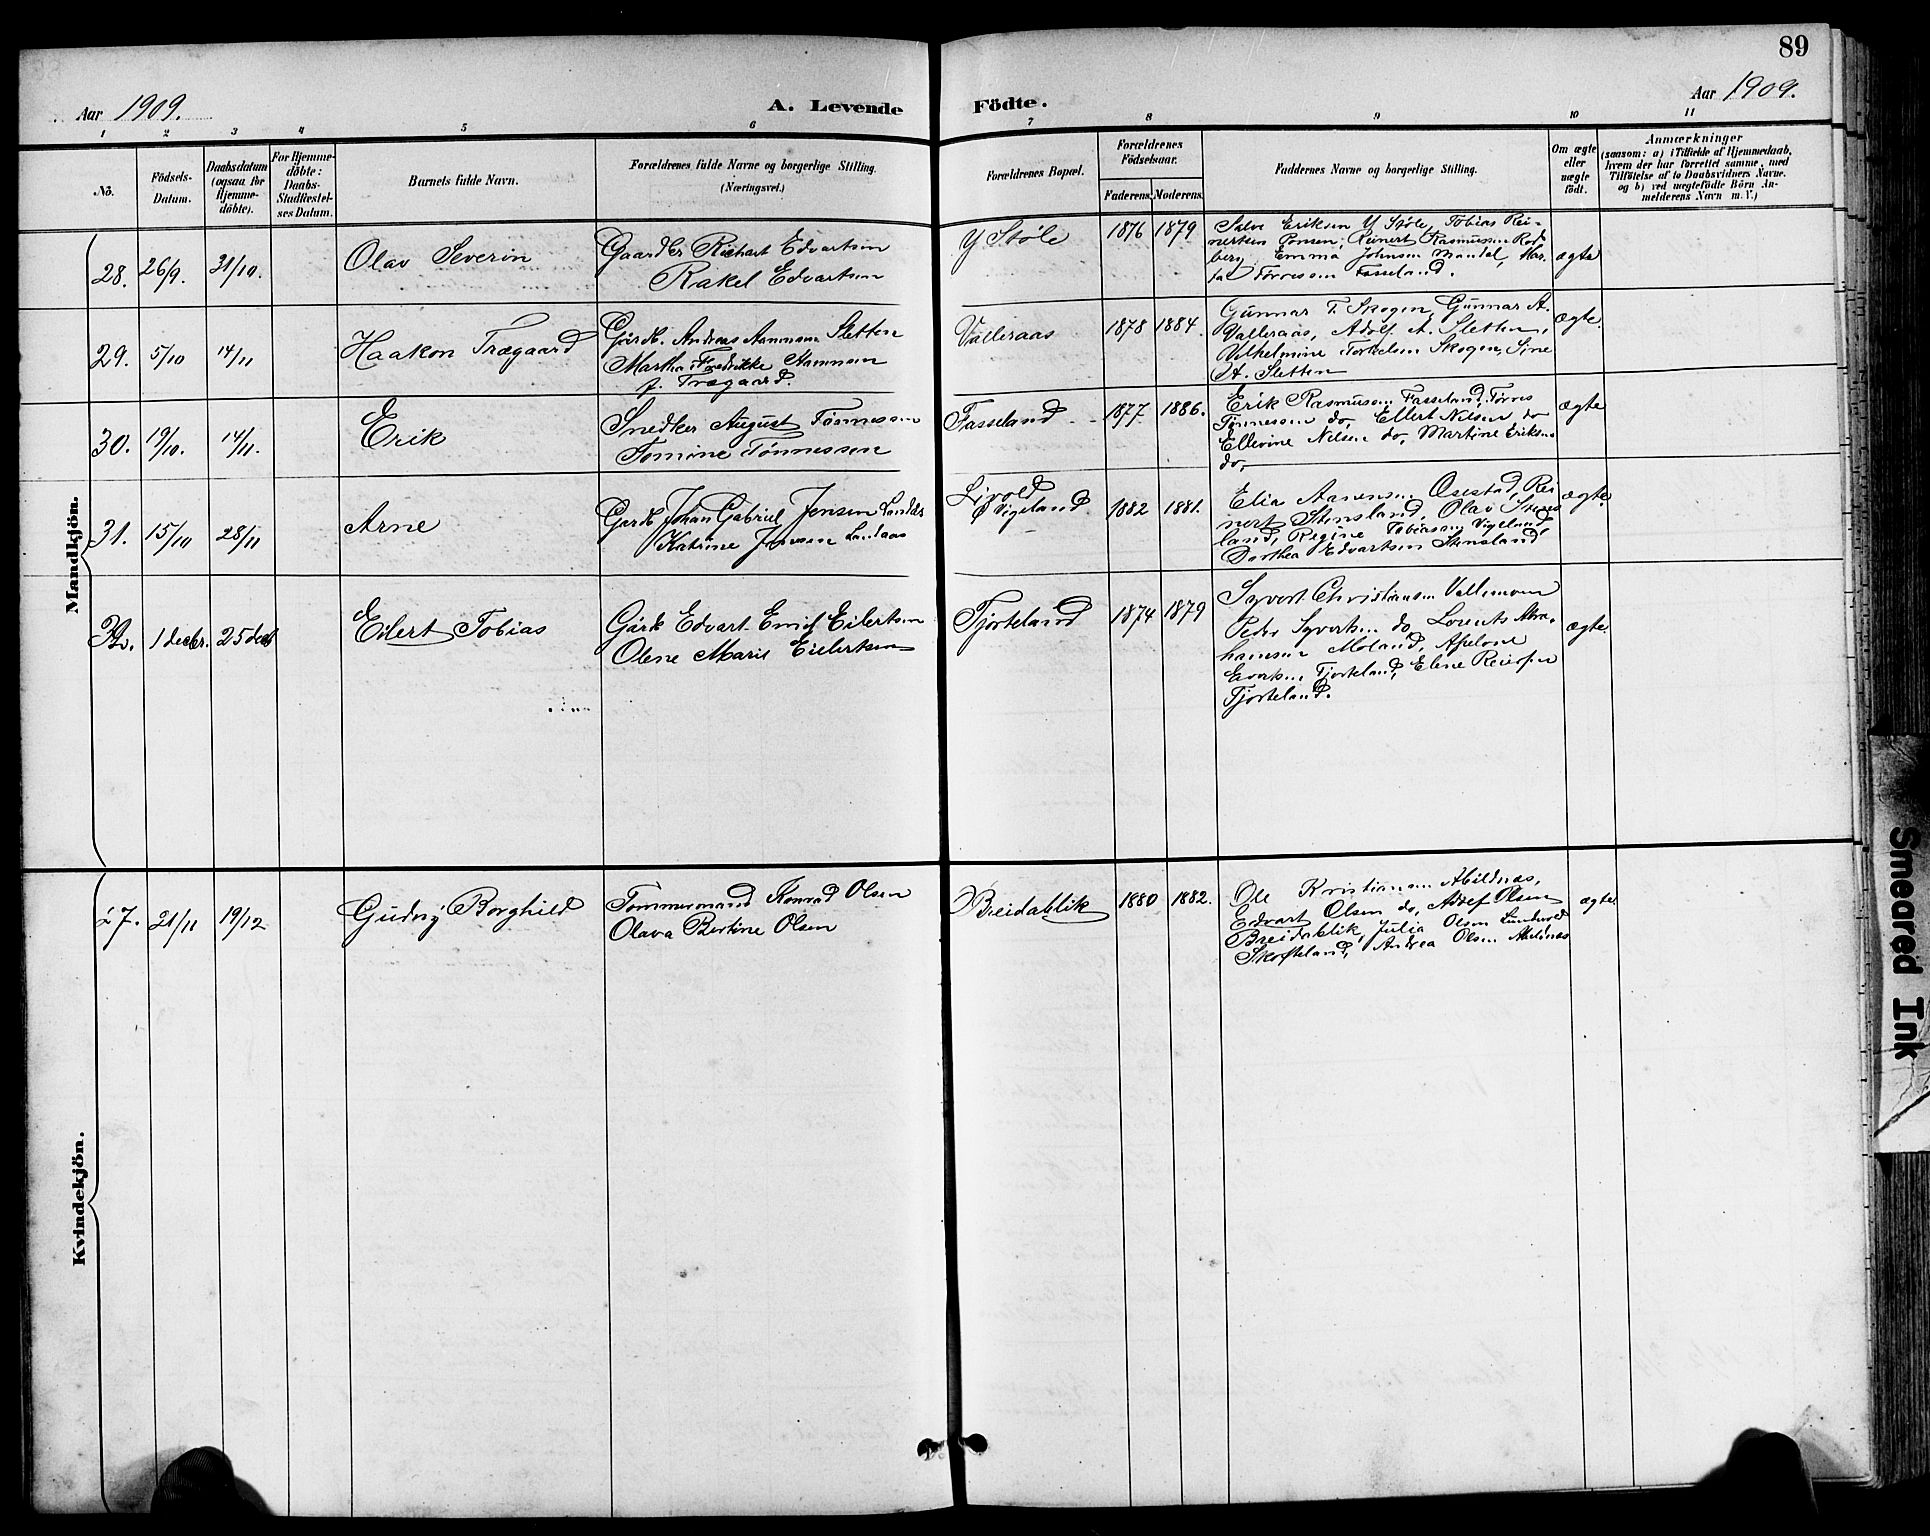 89
Aar 1909.
A. Levende Födte.
Aar 1909.
1 2 3 4 5 6 7 8 9 10 11
No.
Födsels-
Datum.
Daabsdatum
(ogsaa for
Hjemme-
döbte).
For Hjemme-
döbte:
Daabs-
Stadfæstel-
ses Datum.
Barnets fulde Navn.
Forældrenes fulde Navne og borgerlige Stilling.
(Næringsvei.)
Forældrenes Bopæl.
Forældrenes
Födselsaar.
Faderens. Moderens.
Faddernes Navne og borgerlige Stilling.
Om ægte
eller
uægte
födt.
Anmærkninger
(saasom: a) i Tilfælde af Hjemmedaab,
hvem der har forrettet samme, med
Tilföielse af to Daabsvidners Navne.
og b) ved uægtefödte Börn An-
melderens Navn m. V.)
Mandkjön.
28. 26/9. 31/10. Olav Severin
Gaardbr Richart Edvartsen
Rakel Edvartsen
Y Støle 1876 1879
Salve Eriksen Y Støle, Tobias Rei-
nertsen, Reinert Rasmussen Rod-
berg, Emma Johnsen Mandal, Mar-
ta Tørressen Fasseland.
ægte
29. 5/10 14/11 Haakon Trægaard
Gardb. Andreas Aamnsen Sletten
Martha Fredrikke Aamnsen
f. Trægaard.
Valleraas 1878 1884.
Gunnar T. Skogen, Gunnar A.
Valleraas, Adolf A. Sletten,
Vilhelmine Torkelsen Skogen, Sine
A. Sletten
ægte.
30. 19/10. 14/11. Erik
Snedker August Tønnessen
Tomine Tønnessen
Fasseland 1877 1886.
Erik Rasmussen Fasseland, Tørres
Tønnessen do, Ellert Nilsen do
Ellevine Nilsen do, Martine Eriksen
do,
ægte
31. 15/10 28/11 Arne
Gardb Johan Gabriel Jensen Landaas
Katrine Jensen Landaas
Livold
Ø Vigeland 1882 1881.
Elia Aanensen Osestad, Rei-
nert Stensland, Olav Stens-
land, Regine Tobiasen Vigeland,
Dorthea Edvartsen Stensland
ægte
32. 1 decbr. 25 decb Eilert Tobias
Gårb Edvart Emil Eilertsen
Olene Marie Eilertsen
Fjorteland 1874 1879
Syvert Christiansen Vallemoen
Peder Syvertsen do, Lorents Abra-
hamsen Moland,
Fjorteland, Elene
Fjorteland.
ægte
Kvindekjön.
27. 21/11 19/12 Gudny Borghild
Tømmermand Konrad Olsen
Olava Bertine Olsen
Breidablik 1880 1882.
Ole Kristiansen Abildnæs,
Edvart Olsen do, Adolf Olsen
Breidablik, Julia Olsen Lundevold
Skofteland, Andrea Olsen Abildnæs
ægte
Smeared Ink